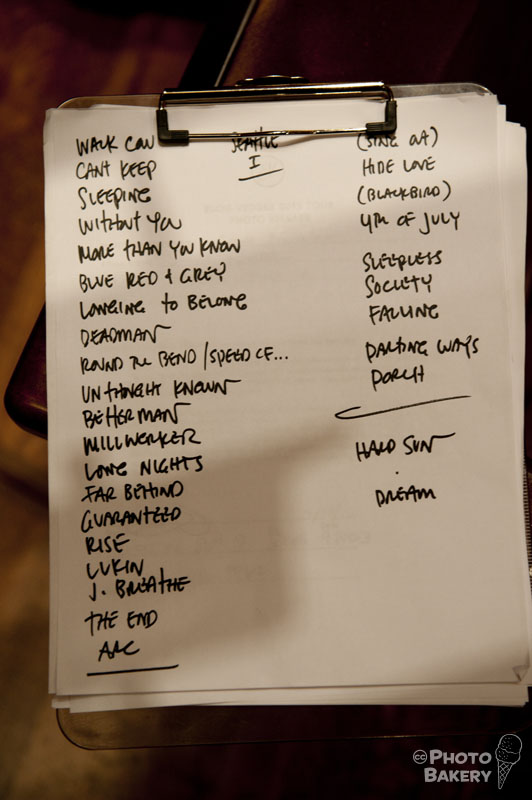 WALK COW
CANT KEEP
SLEEPING
WITHOUT YOU
MORE THAN YOU KNOW
BLUE RED & GREY
LONGING TO BELONG
DEADMAN
ROUND THE BEND / SPEED OF...
UNTHOUGHT KNOWN
BETTERMAN
MILLWORKER
LONG NIGHTS
FAR BEHIND
GUARANTEED
RISE
LUKIN
J. BREATHE
THE END
ARC
SEATTLE
I
(SING OA)
HIDE LOVE
(BLACKBIRD)
4TH OF JULY
SLEEPLESS
SOCIETY
FALLING
PARTING WAYS
PORCH
HARD SUN
.
DREAM
cc PHOTO
BAKERY